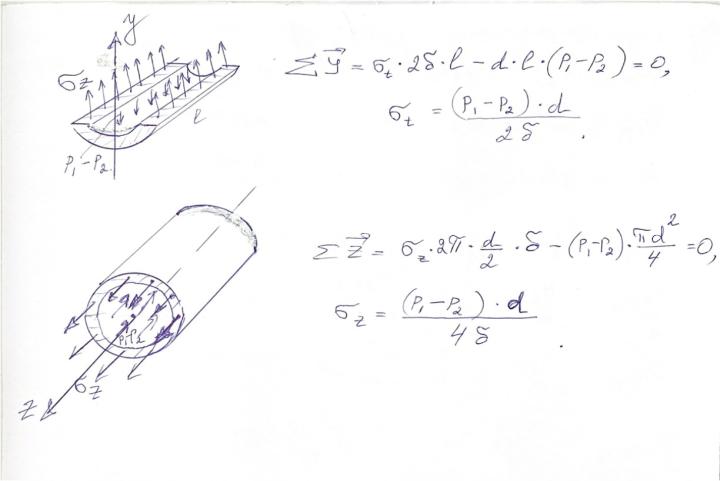 y
σz
l
P₁-P₂
Σy⃗ = σt·2δ·l - d·l·(P₁-P₂) = 0,
σt = (P₁-P₂)·d / 2δ .
P₁-P₂
σz
z
Σz⃗ = σz·2π·d/2·δ - (P₁-P₂)·πd²/4 = 0,
σz = (P₁-P₂)·d / 4δ .